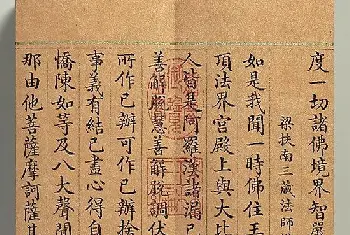 度一切諸佛境界智嚴
梁扶南三藏法師
如是我聞一時佛住王
頂法界宮殿上與大比
人皆是阿羅漢諸漏已
善解脫慧善解脫調伏
所作已辦可作已辦捨
事義有結已盡心得自
憍陳如等及八大聲聞
那由他菩薩摩訶薩